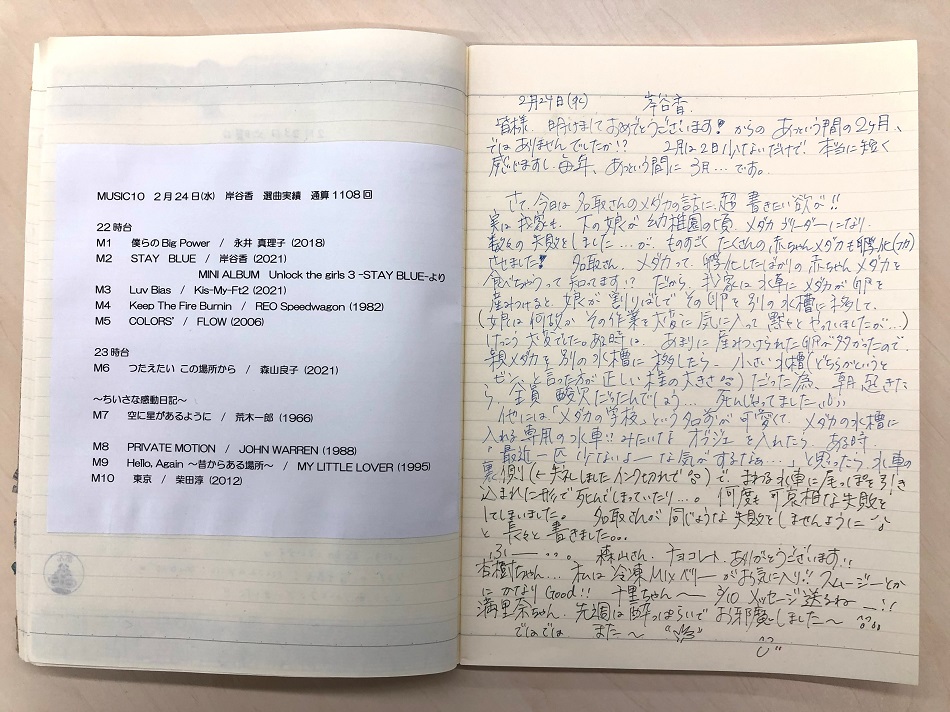 MUSIC10 2月24日(水) 岸谷香 選曲実績 通算1108回
22時台
M1 僕らのBig Power / 永井 真理子 (2018)
M2 STAY BLUE / 岸谷香 (2021)
MINI ALBUM Unlock the girls 3 -STAY BLUE-より
M3 Luv Bias / Kis-My-Ft2 (2021)
M4 Keep The Fire Burnin / REO Speedwagon (1982)
M5 COLORS' / FLOW (2006)
23時台
M6 つたえたい この場所から / 森山良子 (2021)
～ちいさな感動日記～
M7 空に星があるように / 荒木一郎 (1966)
M8 PRIVATE MOTION / JOHN WARREN (1988)
M9 Hello, Again ～昔からある場所～ / MY LITTLE LOVER (1995)
M10 東京 / 柴田淳 (2012)
2月24日(水) 岸谷香
皆様、明けましておめでとうございます! からの あっという間の2ヶ月、
ではありませんでしたか!? 2月は2日少ないだけで、本当に短く
感じますし、毎年、あっという間に3月…です。
さて、今日は名取さんのメダカの話に、超書きたい欲が!!
実は我家も、下の娘が幼稚園の頃、メダカブリーダーになり、
数々の失敗をしました…が、ものすごくたくさんの赤ちゃんメダカも孵化(フカ)
させました! 名取さん、メダカって、孵化したばかりの赤ちゃんメダカを
食べちゃうって知ってます!? だから、我家は水草にメダカが卵を
産みつけると、娘が割りばしでその卵を別の水槽に移して、
(娘は何故かその作業を大変に気に入って黙々とやっていましたが…)
けっこう大変でした。ある時は、あまりに産みつけられた卵が多かったので、
親メダカを別の水槽に移したら、小さい水槽(どちらかというと
ビンと言った方が正しい程の大きさ)だった為、朝起きた
ら、全員酸欠だったんでしょう… 死んじゃってました
他には「メダカの学校」という名前が可愛くて、メダカの水槽に
入れる専用の水車!! みたいなオブジェを入れたら、ある時、
「最近一匹少ないよーな気がするなぁ…」と思ったら、水車の
裏側(←失礼しました インク切れで)で、まわる水車に尾っぽを引き
込まれた形で死んでしまっていたり…。何度も可哀相な失敗を
してしまいました。名取さんが同じような失敗をしませんように
と長々と書きました。。。
ふぃー。。。 森山さん、チョコレート、ありがとうございます!!
杏樹ちゃん… 私は冷凍MIXベリーがお気に入り!! スムージーとか
にかなりGood!! 千里ちゃん～ 3/10 メッセージ送るねー!!
満里奈ちゃん、先週は酔っぱらいでお邪魔しました～
ではでは また～